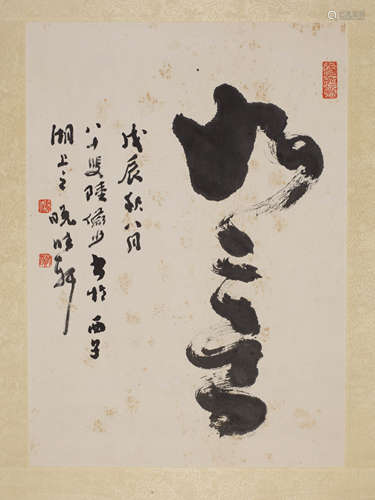 如意
戊辰秋八月
八十叟陸儼少書於西子
湖上之晚晴軒